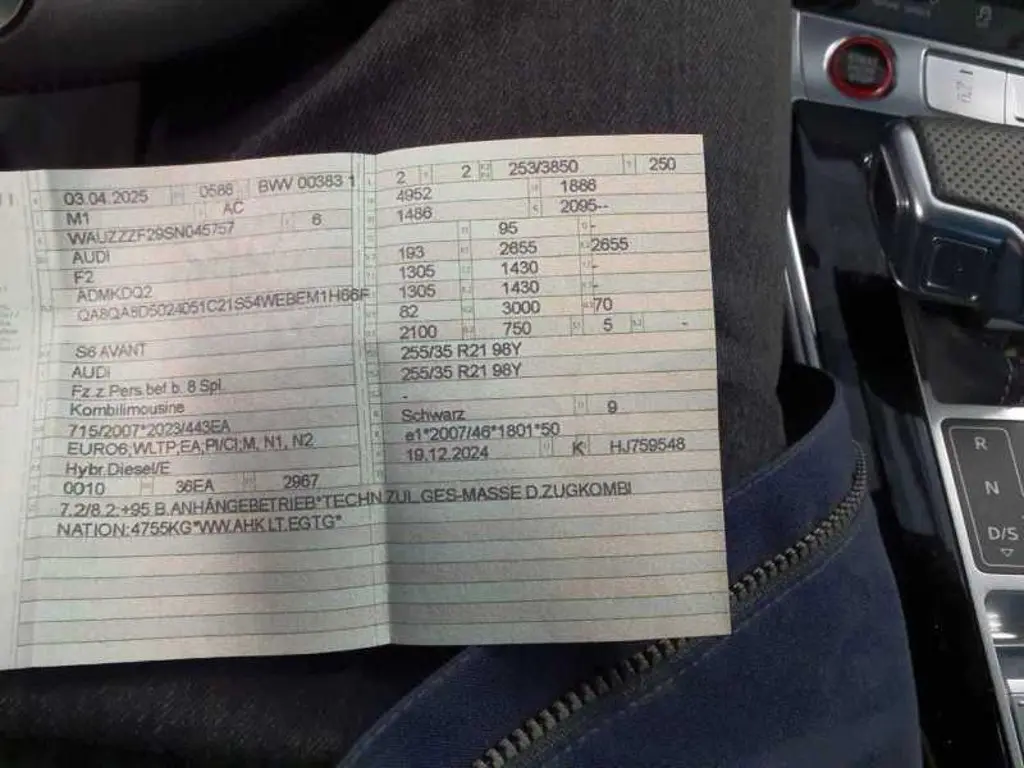 03.04.2025 0588 BWW 00383 1
M1 AC
WAUZZZF29SN045757 6
AUDI
F2
ADMKDQ2
QA8QA8D5024051C21S54WEBEM1H66F
S6 AVANT
AUDI
Fz.z.Pers.bef.b. 8 Spl.
Kombilimousine
715/2007*2023/443EA
EURO6;WLTP;EA;PI/CI;M, N1, N2
Hybr.Diesel/E
0010 36EA 2967
2 2 253/3850 250
4952 1886
1486 2095--
95 -
193 2655 2655
1305 1430 -
1305 1430 -
82 3000 70
2100 750 5 -
255/35 R21 98Y
255/35 R21 98Y
-
Schwarz 9
e1*2007/46*1801*50
19.12.2024 K HJ759548
7.2/8.2:+95 B.ANHÄNGEBETRIEB*TECHN.ZUL.GES-MASSE D.ZUGKOMBI
NATION:4755KG*WW.AHK LT.EGTG*
R
N
D/S